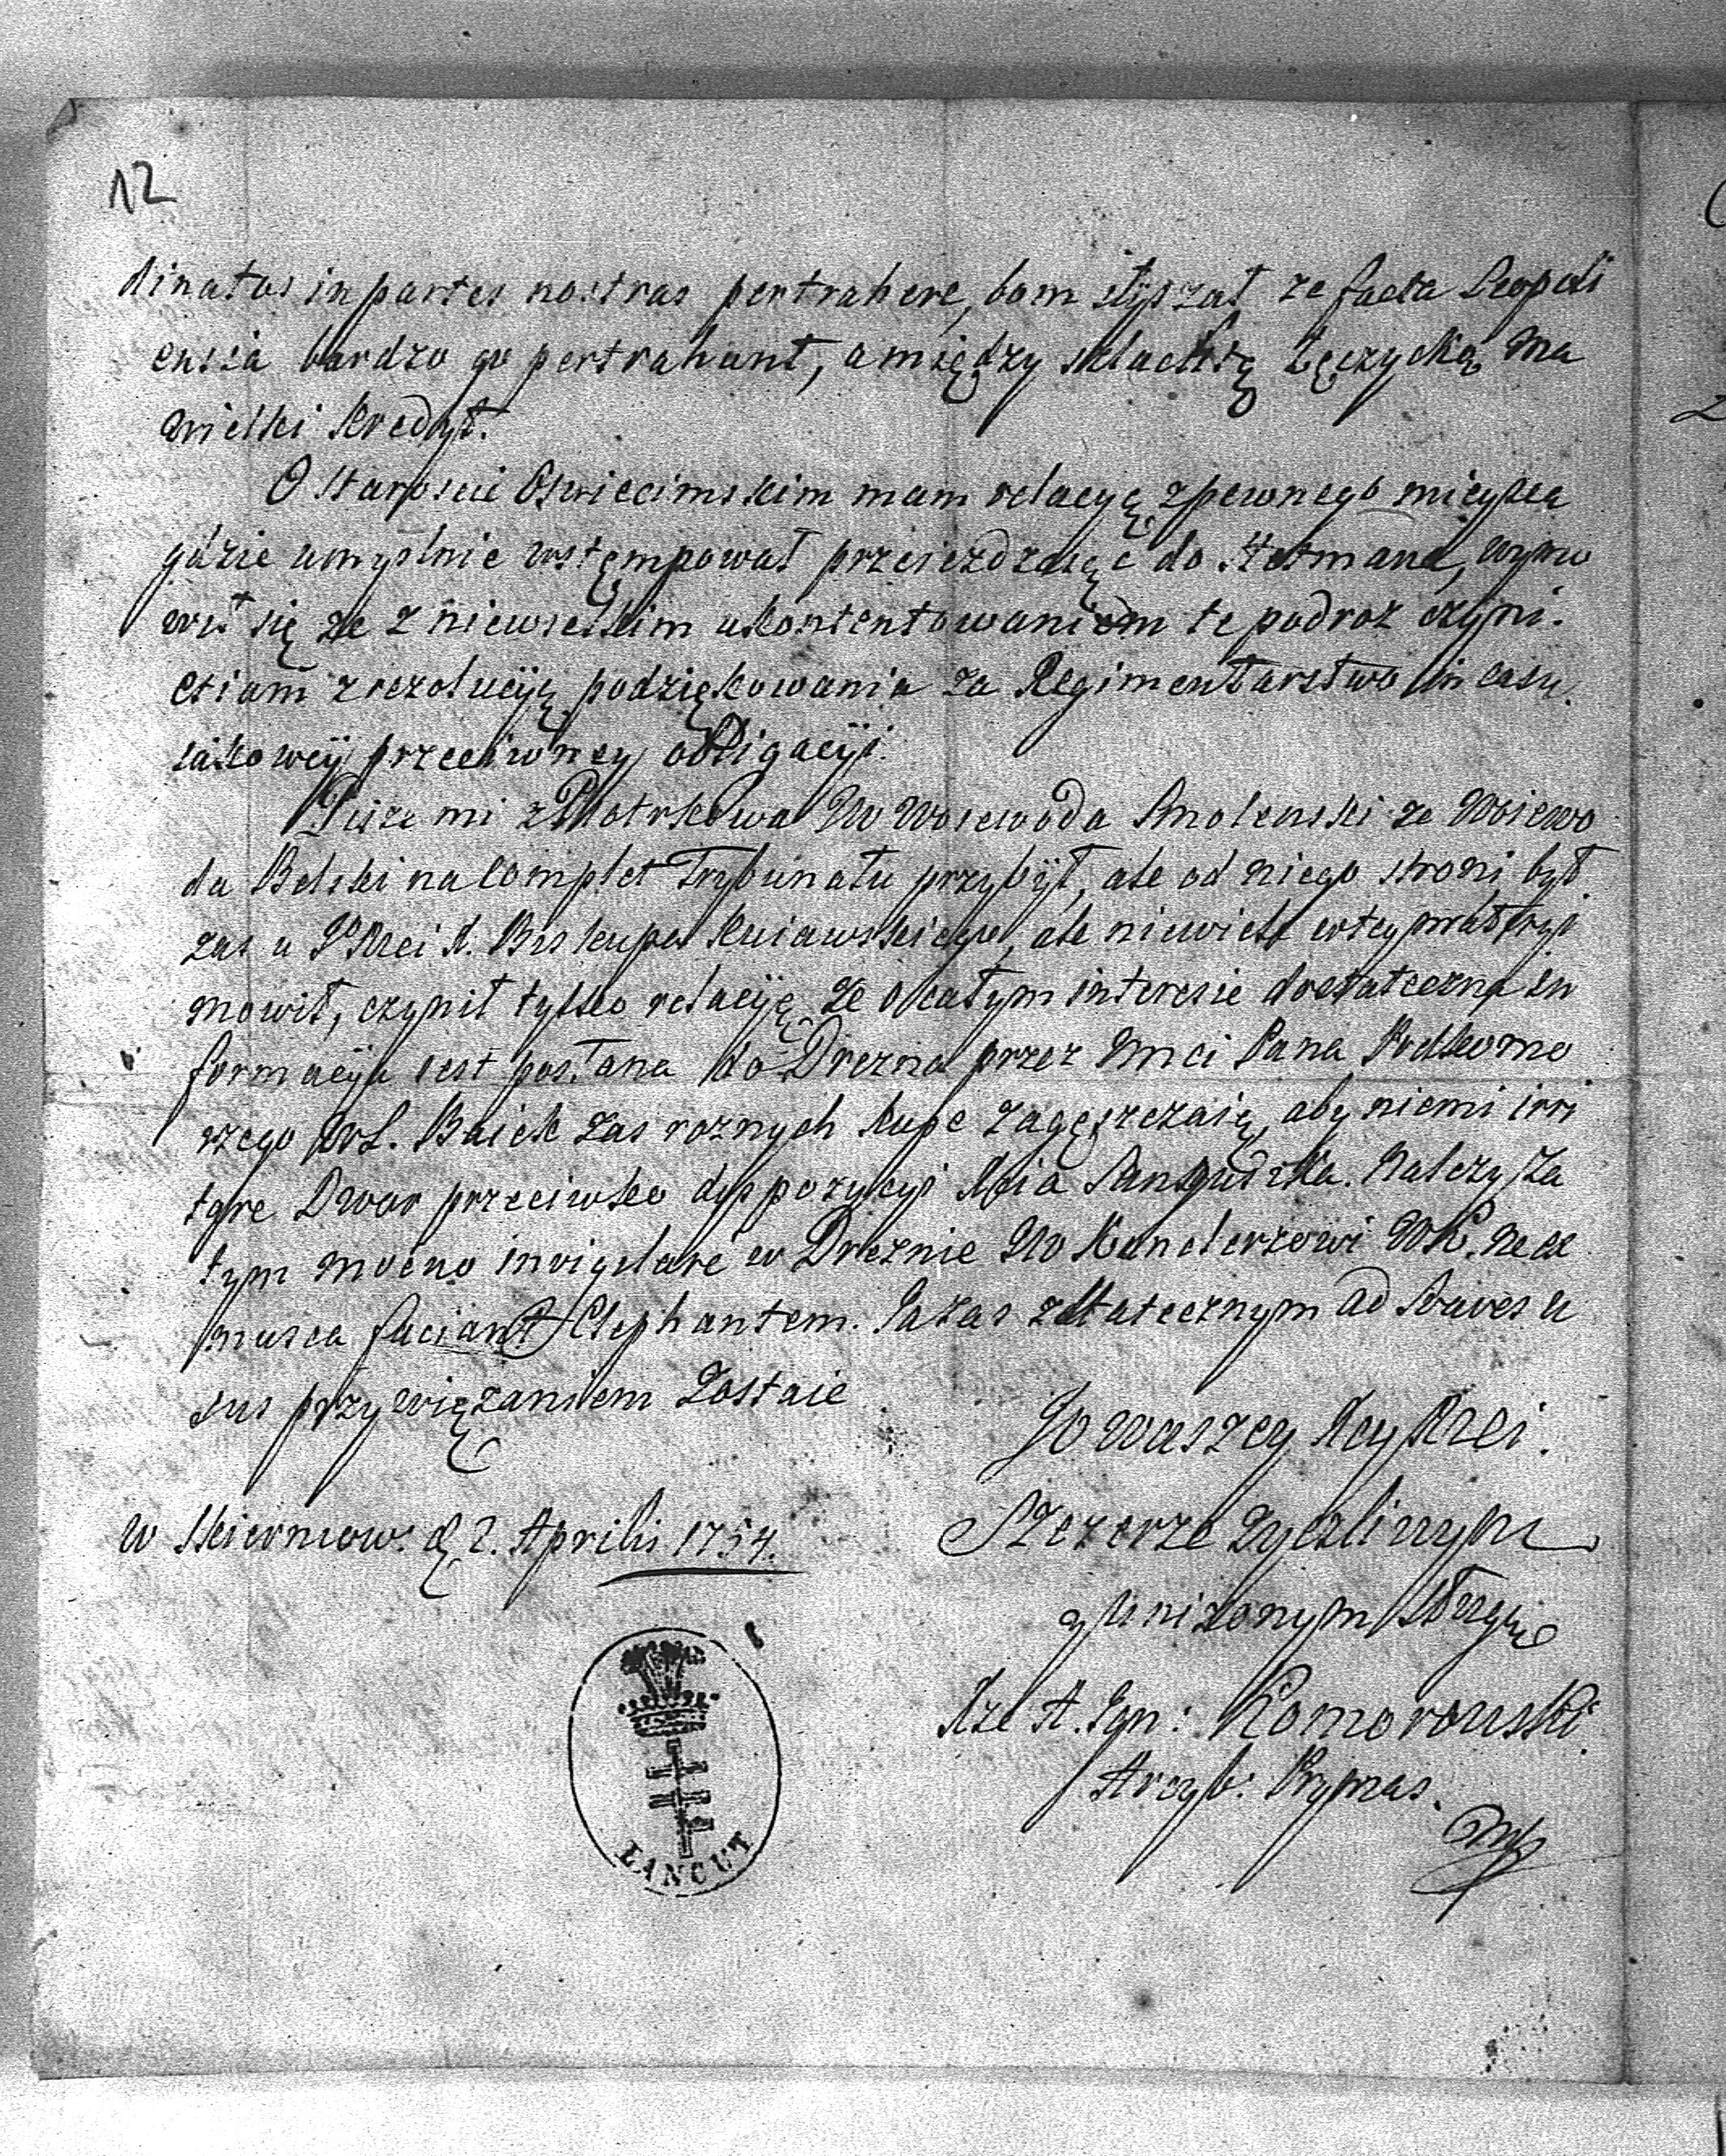 12
dinatus in partes nostras pertrahere, bom słyszał ze facta Leopoli
ensia bardzo go pertrahunt, a między szlachtą Łęczycką ma
wielki kredyt.
O Staroscie Oswiecimskim mam relacyą z pewnego mieysca
gdzie umyslnie wstępował przeiezdzaiąc do Hetmana, wymo
wił się ze z niewielkim ukontentowaniem te podroz czyni.
etiam z rezolucyą podziękowania za Regimentarstwo in casu
iakowey przeciwney obligacyi.
Pisze mi z Piotrkowa JW Woiewoda Smolenski ze Woiewo
da Belski na complet Trybunału przybył, ale od niego stroni, był
zas u JKMci X. Biskupa Kuiawskiego, ale niewiele w tey materyi
mowił, czynił tylko relacyę, ze o całym interesie dostateczna in
formacya iest posłana do Drezna przez Imci Pana Podkomo
rzego Lit. Baiek zas roznych kupe zagęszczaią, aby niemi irri
tare Dwor przeciwko dyspozycyi Xcia Sanguszka. Nalezy za
tym mocno invigilare w Dreznie JW Kanclerzowi WK. ne ex
musca faciant Elephantem. Ja zas z statecznym ad Suaves u
sus przywiązaniem zostaie
JW Waszey Xcy Mci.
Szczerze zyczliwym
y unizonym sługą
W Skierniew. d. 2. Aprilis 1754.
Xze A. Ign: Komorowski.
Arcyb. Prymas.
mp
LANCUT